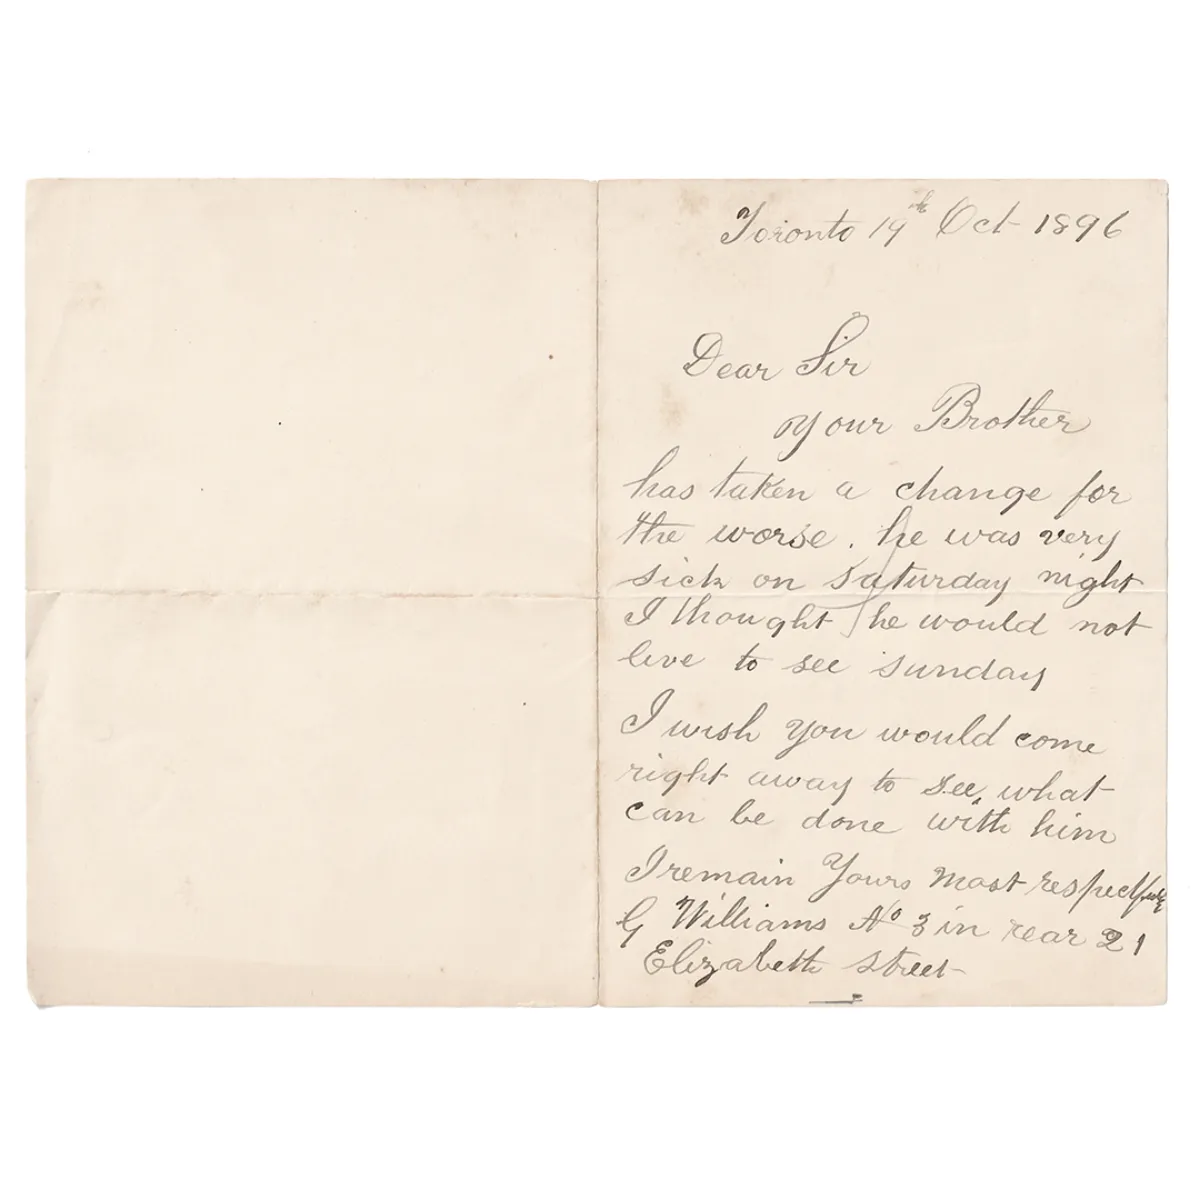 Toronto 19th Oct 1896
Dear Sir
your Brother
has taken a change for
the worse. he was very
sick on saturday night
I thought he would not
live to see sunday
I wish you would come
right away to see, what
can be done with him
I remain Yours most respectfully
G Williams No 3 in rear 21
Elizabeth street